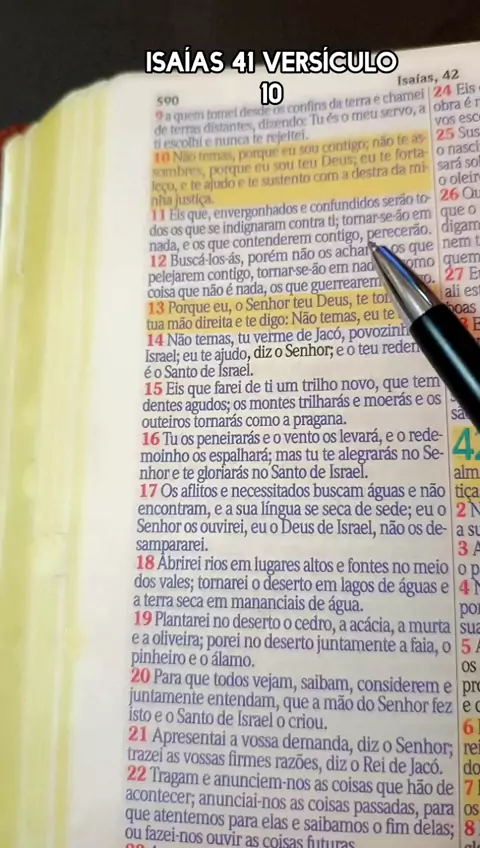 ISAÍAS 41 VERSÍCULO
10
Isaías, 42
590
9 a quem tomei desde os confins da terra e chamei
de terras distantes, dizendo: Tu és o meu servo, a
ti escolhi e nunca te rejeitei.
10 Não temas, porque eu sou contigo; não te as-
sombres, porque eu sou teu Deus; eu te forta-
leço, e te ajudo e te sustento com a destra da mi-
nha justiça.
11 Eis que, envergonhados e confundidos serão to-
dos os que se indignaram contra ti; tornar-se-ão em
nada, e os que contenderem contigo, perecerão.
12 Buscá-los-ás, porém não os achar os que
pelejarem contigo, tornar-se-ão em nad como
coisa que não é nada, os que guerrearem
13 Porque eu, o Senhor teu Deus, te to
tua mão direita e te digo: Não temas, eu te
14 Não temas, tu verme de Jacó, povozinh
Israel; eu te ajudo, diz o Senhor; e o teu reden
é o Santo de Israel.
15 Eis que farei de ti um trilho novo, que tem
dentes agudos; os montes trilharás e moerás e os
outeiros tornarás como a pragana.
16 Tu os peneirarás e o vento os levará, e o rede-
moinho os espalhará; mas tu te alegrarás no Se-
nhor e te gloriarás no Santo de Israel.
17 Os aflitos e necessitados buscam águas e não
encontram, e a sua língua se seca de sede; eu o
Senhor os ouvirei, eu o Deus de Israel, não os de-
sampararei.
18 Abrirei rios em lugares altos e fontes no meio
dos vales; tornarei o deserto em lagos de águas e
a terra seca em mananciais de água.
19 Plantarei no deserto o cedro, a acácia, a murta
e a oliveira; porei no deserto juntamente a faia, o
pinheiro e o álamo.
20 Para que todos vejam, saibam, considerem e
juntamente entendam, que a mão do Senhor fez
isto e o Santo de Israel o criou.
21 Apresentai a vossa demanda, diz o Senhor;
trazei as vossas firmes razões, diz o Rei de Jacó.
22 Tragam e anunciem-nos as coisas que hão de
acontecer; anunciai-nos as coisas passadas, para
que atentemos para elas e saibamos o fim delas;
ou fazei-nos ouvir as coisas futuras.
24 Eis
obra é
vos esc
25 Sus
o nasci
sará so
o oleir
26 Qu
que o
digam
nem t
quem
27 E
ali est
boas
42
alm
tiça
2 N
a su
3 A
o p
4 N
por
sua
5 A
os
pro
e c
6
rei
do
7
os
8